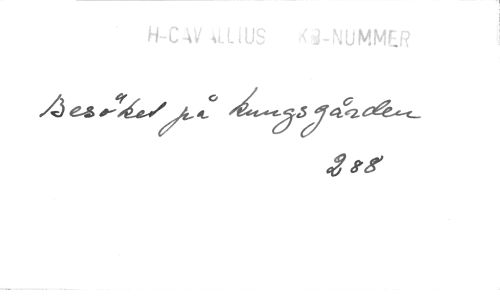 H-CAVALLIUS KB-NUMMER
Besöket på kungsgården
288